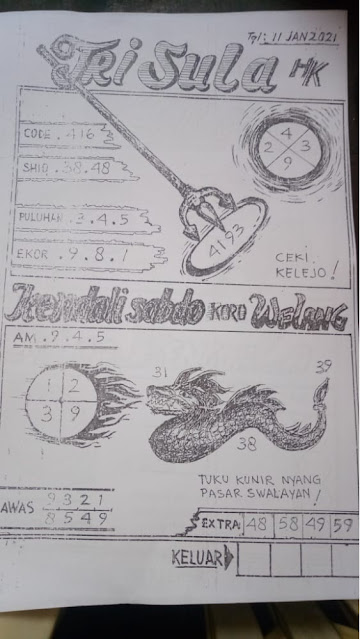 Tgl: 11 JAN 2021
TRi SulA HK
CODE . 416
SHIO . 38.48
PULUHAN . 3.4.5
EKOR . 9.8.1
4
2 3
9
4193
CEKI.
KELEJO!
Kendali sabdo KARO WELANG
AM . 9.4.5
1 2
3 9
31
39
38
TUKU KUNIR NYANG
PASAR SWALAYAN!
AWAS
9 3 2 1
8 5 4 9
EXTRA 48 58 49 59
KELUAR